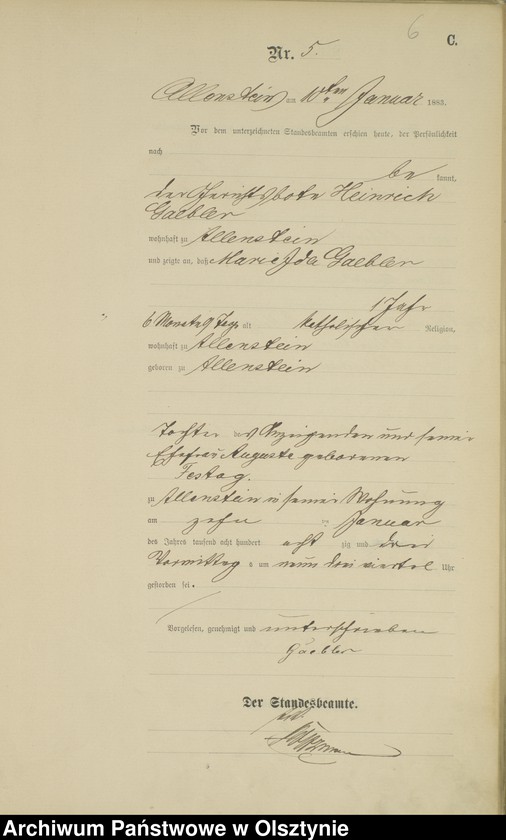 6
C.
Nr. 5.
Allenstein am 10ten Januar 1883.
Vor dem unterzeichneten Standesbeamten erschien heute, der Persönlichkeit
nach
be kannt,
der Gerichtsbote Heinrich
Gaebler
wohnhaft zu Allenstein
und zeigte an, daß Marie Ida Gaebler
1 Jahr
6 Monate 9 Tage alt katholischer Religion,
wohnhaft zu Allenstein
geboren zu Allenstein
Tochter des Anzeigenden und seiner
Ehefrau Auguste geborenen
Festag.
zu Allenstein in seiner Wohnung
am zehn ten Januar
des Jahres tausend acht hundert acht zig und drei
Vormittags um neun drei viertel Uhr
gestorben sei.
Vorgelesen, genehmigt und unterschrieben
Gaebler
Der Standesbeamte.
Archiwum Państwowe w Olsztynie